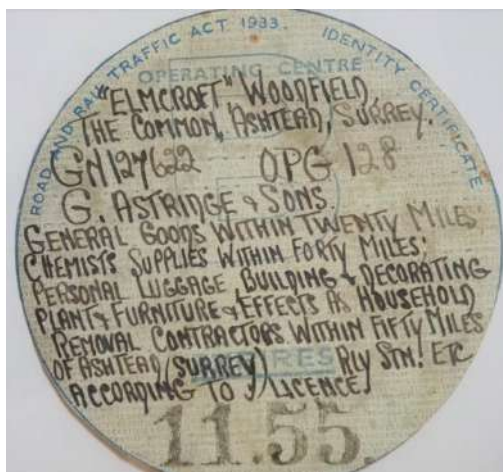 ROAD AND RAIL TRAFFIC ACT. 1933. IDENTITY CERTIFICATE
OPERATING CENTRE
"ELMCROFT" WOODFIELD,
THE COMMON, ASHTEAD, SURREY.
GN127622 OPG 128
G. ASTRINGE & SONS.
GENERAL GOODS WITHIN TWENTY MILES
CHEMISTS SUPPLIES WITHIN FORTY MILES:
PERSONAL LUGGAGE, BUILDING & DECORATING
PLANT & FURNITURE & EFFECTS AS HOUSEHOLD
REMOVAL CONTRACTORS WITHIN FIFTY MILES
OF ASHTEAD (SURREY) RLY STN: ETC
ACCORDING TO LICENCE
11.55.